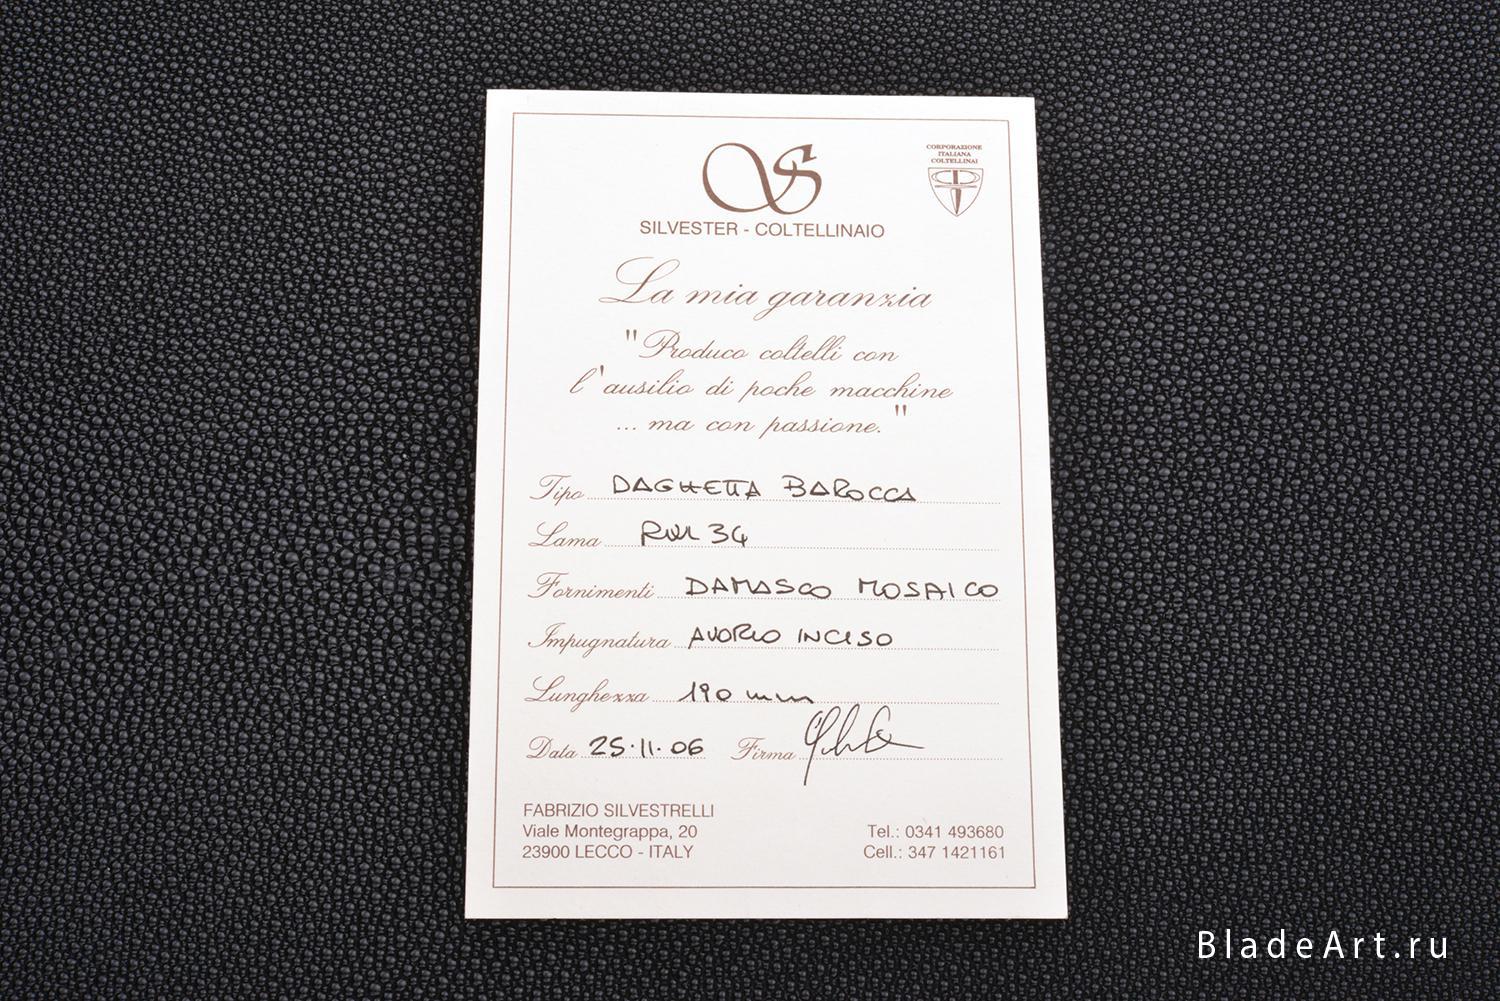 S
CORPORAZIONE
ITALIANA
COLTELLINAI
SILVESTER - COLTELLINAIO
La mia garanzia
"Produco coltelli con
l'ausilio di poche macchine
... ma con passione."
Tipo DAGHETTA BAROCCA
Lama RWL 34
Fornimenti DAMASCO MOSAICO
Impugnatura AVORIO INCISO
Lunghezza 190 mm
Data 25.11.06 Firma
FABRIZIO SILVESTRELLI
Viale Montegrappa, 20 Tel.: 0341 493680
23900 LECCO - ITALY Cell.: 347 1421161
BladeArt.ru